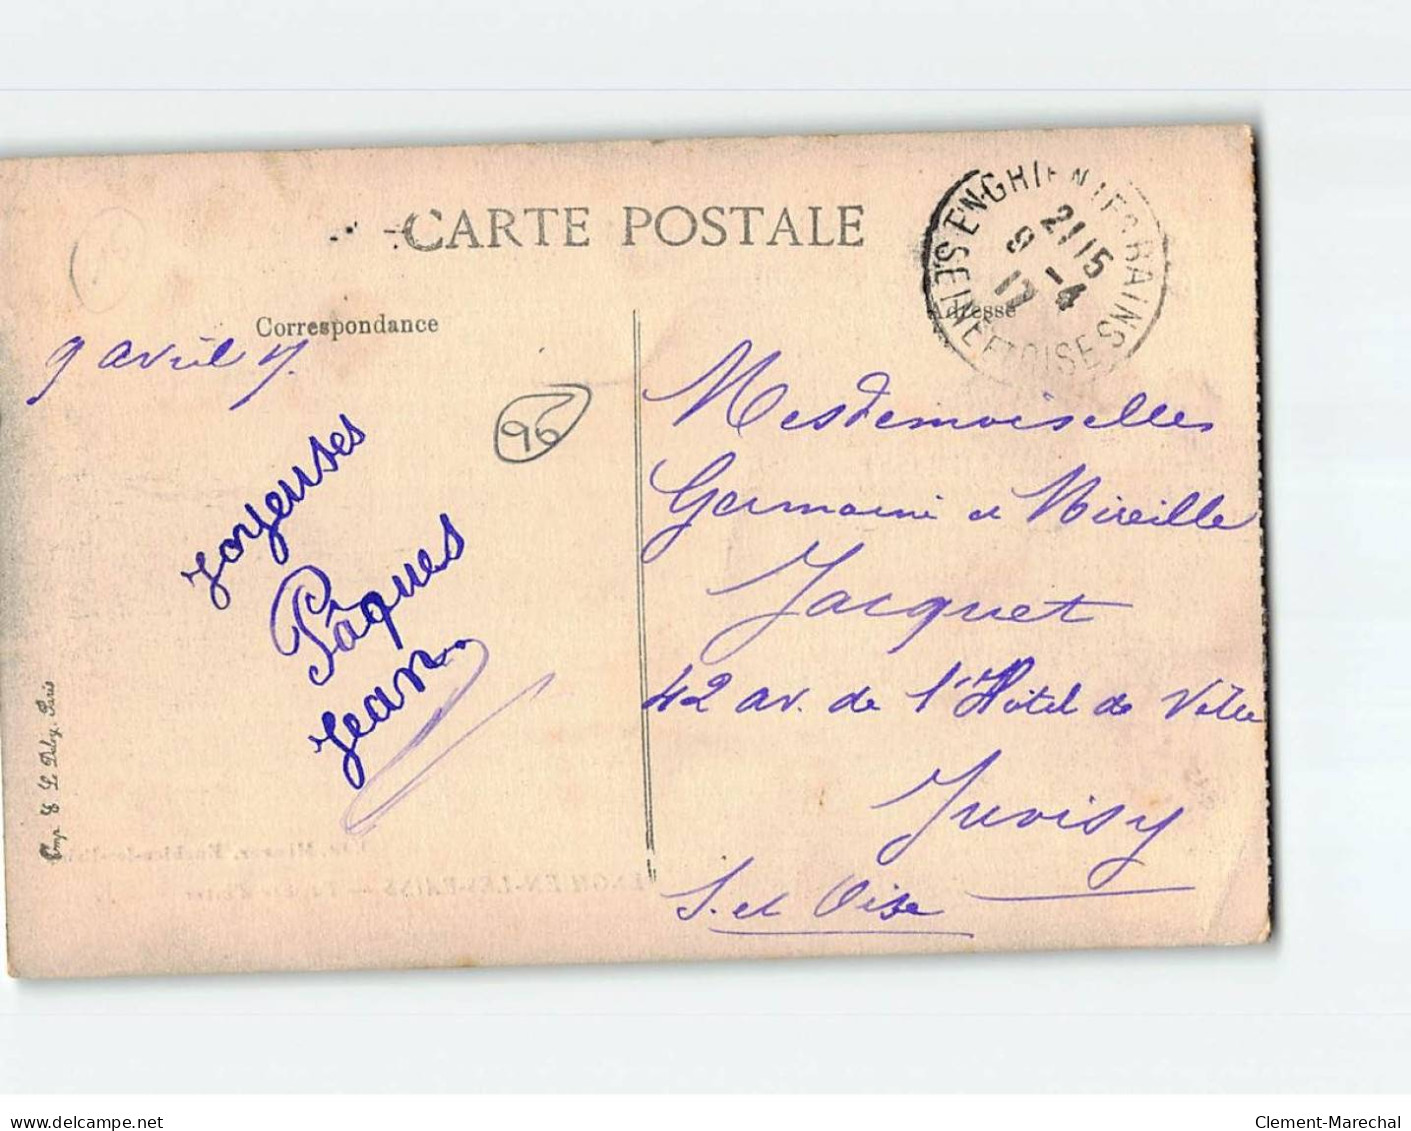 CARTE POSTALE
ENGHIEN LES BAINS
SEINE ET OISE
21 15
9 - 4
17
Correspondance
Adresse
9 avril 17.
96
Joyeuses
Pâques
Jean
Mesdemoiselles
Germaine et Mireille
Jacquet
42 av. de l'Hôtel de Ville
Juvisy
S. et Oise
Imp. E. L. Deley, Paris
ENGHIEN-LES-BAINS
www.delcampe.net
Clement-Marechal